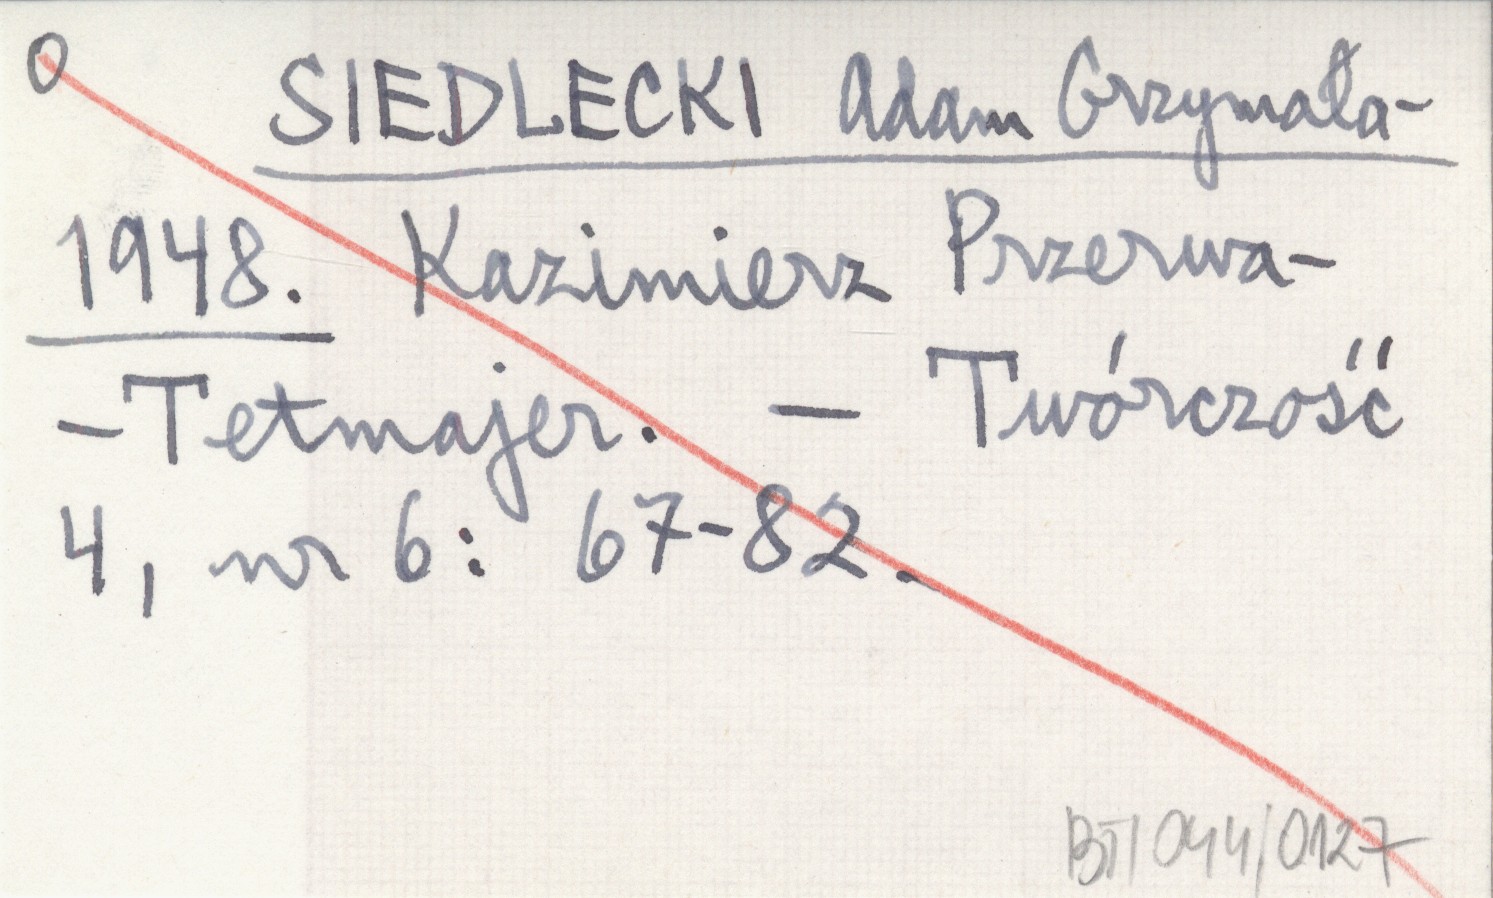 O SIEDLECKI Adam Grzymała-
1948. Kazimierz Przerwa-
-Tetmajer. — Twórczość
4, nr 6: 67-82.
BT/044/0127